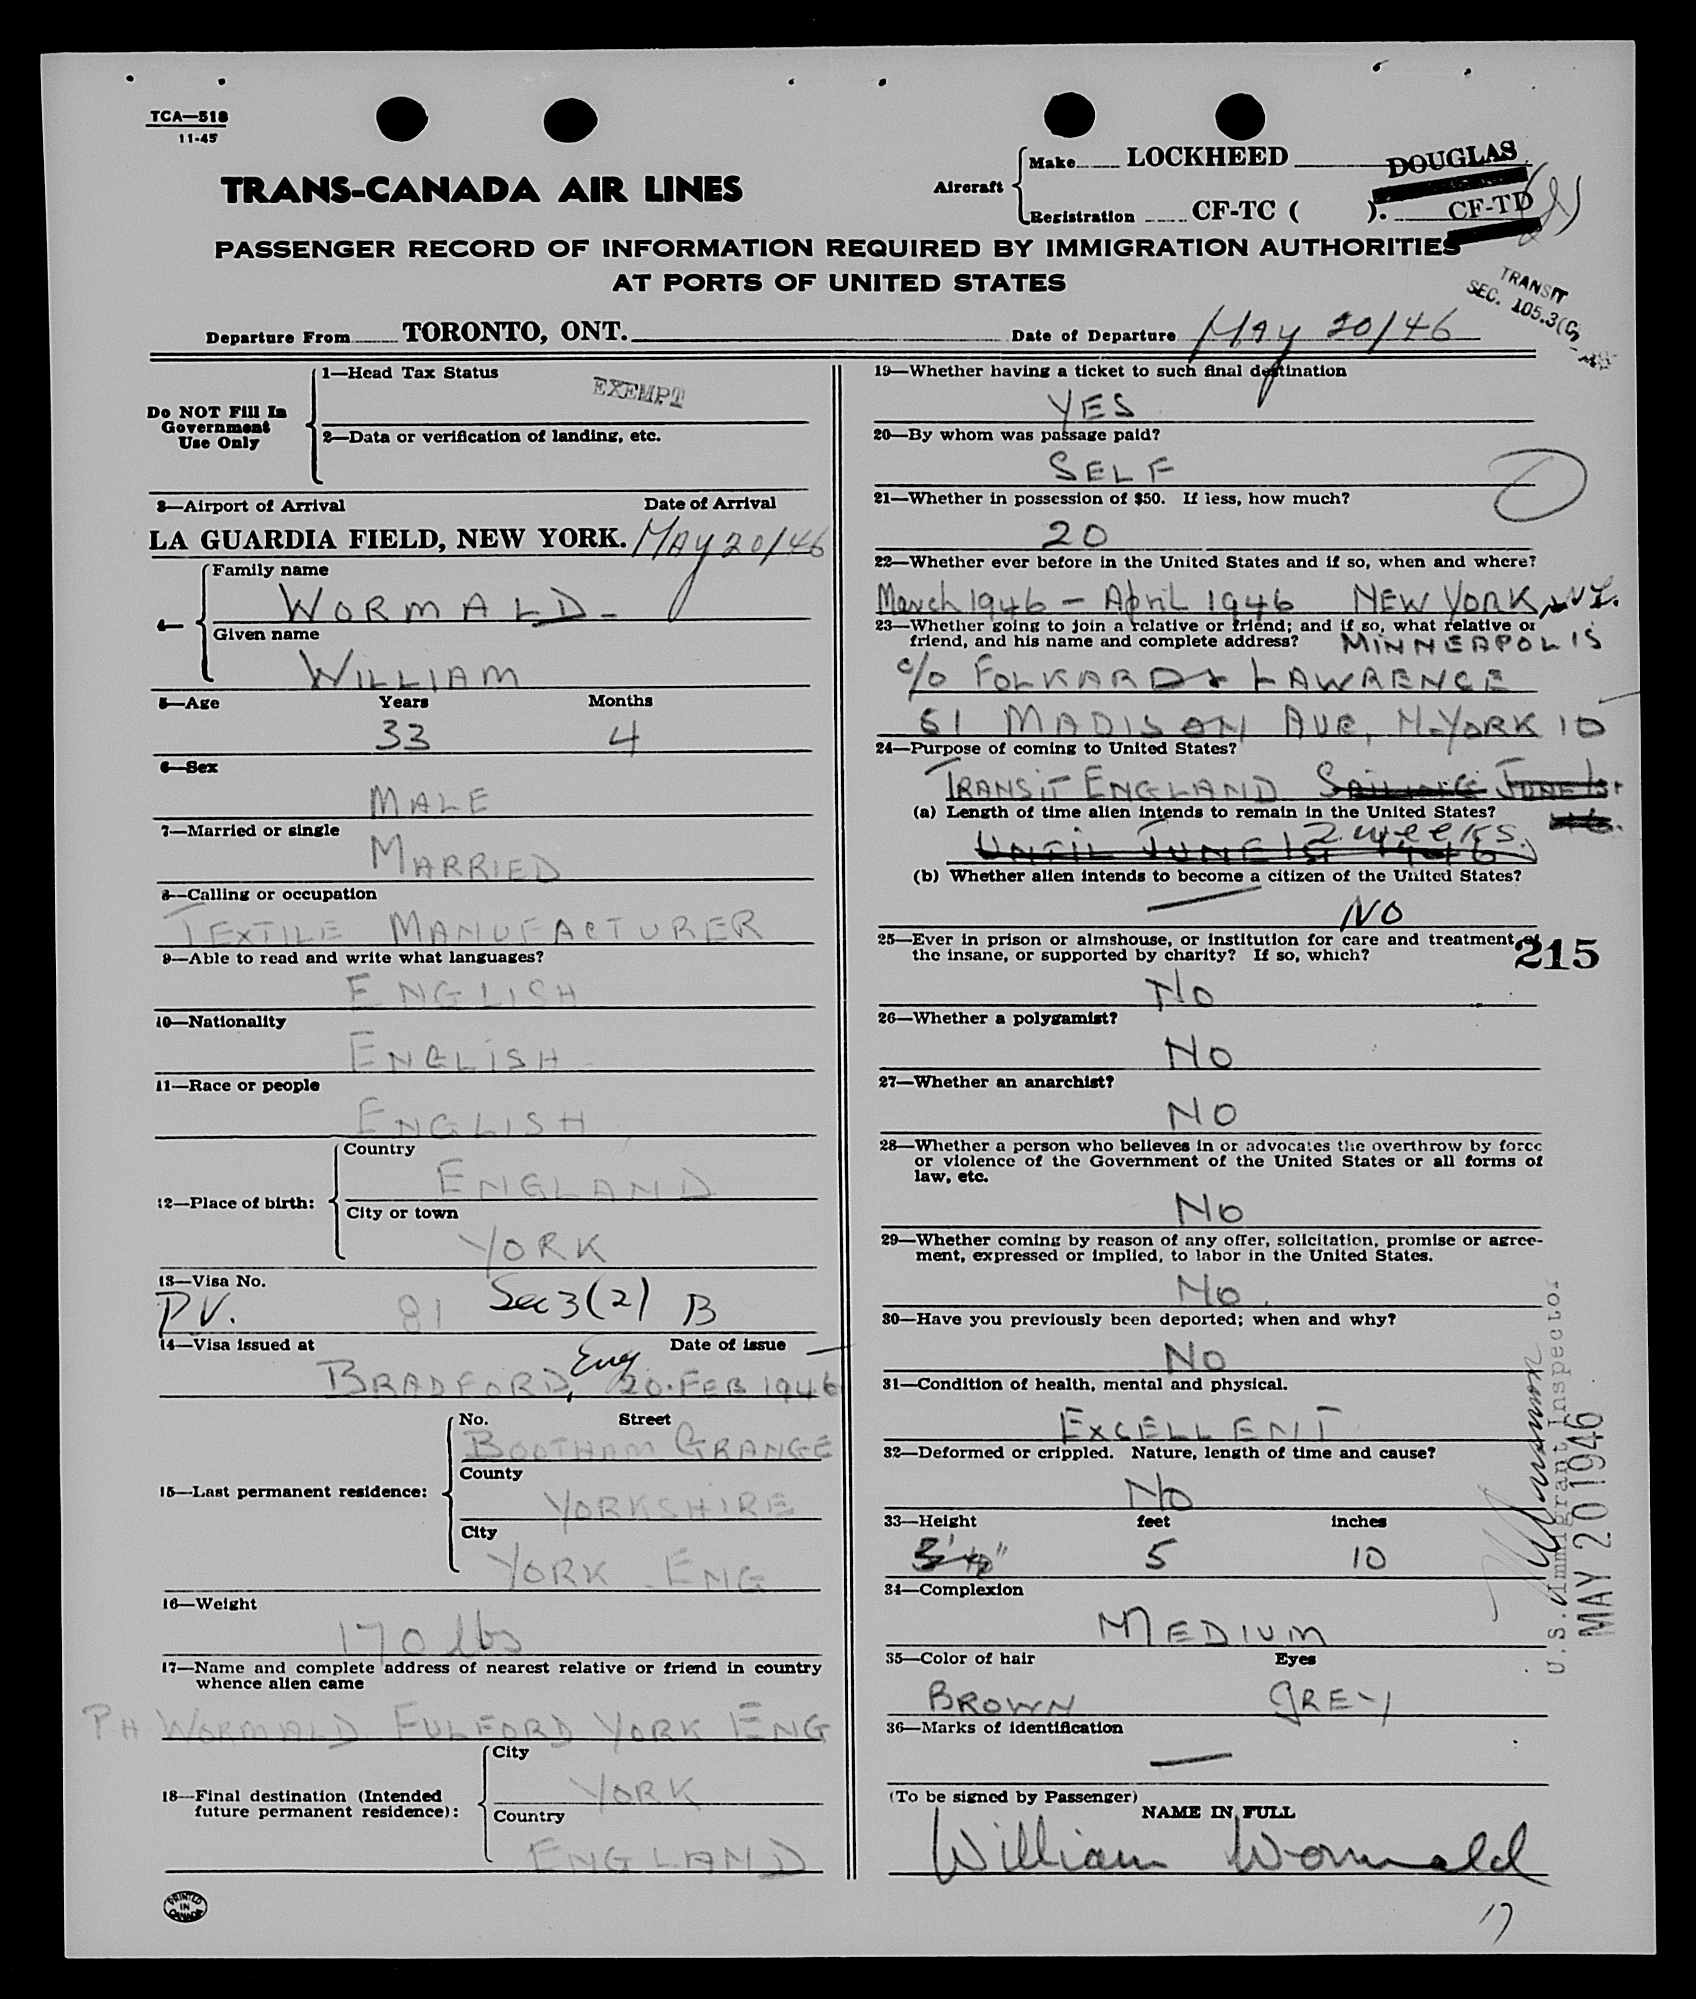 TCA—518
11-45
TRANS-CANADA AIR LINES
Aircraft
Make LOCKHEED DOUGLAS
Registration CF-TC ( ). CF-TD
PASSENGER RECORD OF INFORMATION REQUIRED BY IMMIGRATION AUTHORITIES
AT PORTS OF UNITED STATES
TRANSIT
SEC. 105.3
Departure From TORONTO, ONT. Date of Departure MAY 20/46
Do NOT Fill In
Government
Use Only
1—Head Tax Status
EXEMPT
2—Data or verification of landing, etc.
3—Airport of Arrival Date of Arrival
LA GUARDIA FIELD, NEW YORK. MAY 20/46
4—
Family name
WORMALD
Given name
WILLIAM
5—Age Years Months
33 4
6—Sex
MALE
7—Married or single
MARRIED
8—Calling or occupation
TEXTILE MANUFACTURER
9—Able to read and write what languages?
ENGLISH
10—Nationality
ENGLISH
11—Race or people
ENGLISH
12—Place of birth:
Country
ENGLAND
City or town
YORK
13—Visa No.
PV. 81 Sec 3(2) B
14—Visa issued at Date of issue
BRADFORD, Eng 20. FEB 1946
15—Last permanent residence:
No. Street
BOOTHAM GRANGE
County
YORKSHIRE
City
YORK. ENG
16—Weight
170 lbs
17—Name and complete address of nearest relative or friend in country
whence alien came
PH WORMALD FULFORD YORK ENG
18—Final destination (Intended
future permanent residence):
City
YORK
Country
ENGLAND
PRINTED
IN
CANADA
19—Whether having a ticket to such final destination
YES
20—By whom was passage paid?
SELF
21—Whether in possession of $50. If less, how much?
20
22—Whether ever before in the United States and if so, when and where?
March 1946 – APRIL 1946 NEW YORK
23—Whether going to join a relative or friend; and if so, what relative or
friend, and his name and complete address? MINNEAPOLIS
c/o FOLKARD & LAWRENCE
51 MADISON AVE, N.YORK 10
24—Purpose of coming to United States?
TRANSIT ENGLAND SAILING JUNE 1st
(a) Length of time alien intends to remain in the United States?
46.
2 weeks.
UNTIL JUNE 1st 1946
(b) Whether alien intends to become a citizen of the United States?
NO
25—Ever in prison or almshouse, or institution for care and treatment of
the insane, or supported by charity? If so, which?
215
NO
26—Whether a polygamist?
NO
27—Whether an anarchist?
NO
28—Whether a person who believes in or advocates the overthrow by force
or violence of the Government of the United States or all forms of
law, etc.
NO
29—Whether coming by reason of any offer, solicitation, promise or agree-
ment, expressed or implied, to labor in the United States.
NO.
30—Have you previously been deported; when and why?
NO
31—Condition of health, mental and physical.
EXCELLENT
32—Deformed or crippled. Nature, length of time and cause?
NO
33—Height feet inches
5' 10" 5 10
34—Complexion
MEDIUM
35—Color of hair Eyes
BROWN GREY
36—Marks of identification
—
(To be signed by Passenger)
NAME IN FULL
William Wormald
U.S. Immigrant Inspector
MAY 20 1946
17